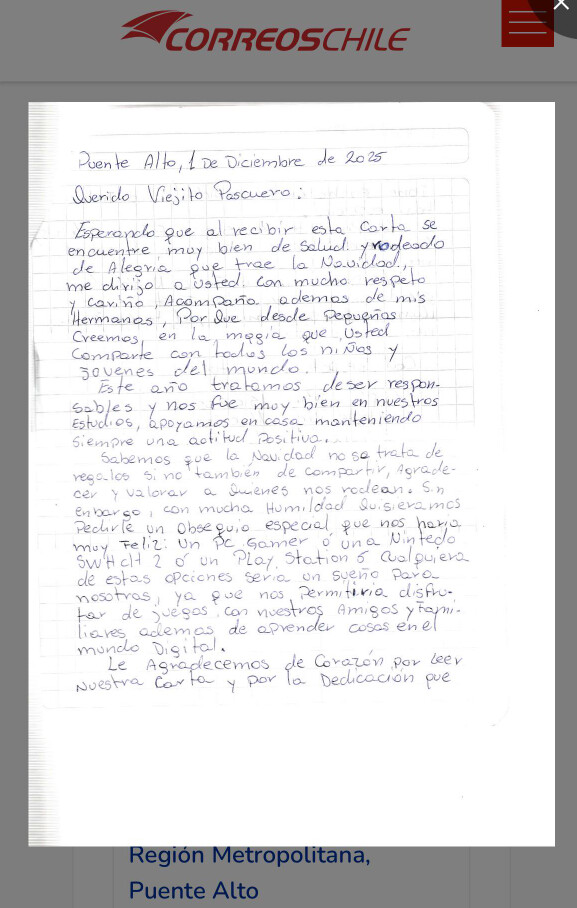 CORREOSCHILE
Puente Alto, 1 De Diciembre de 2025
Querido Viejito Pascuero:
Esperando que al recibir esta Carta se
encuentre muy bien de salud y rodeado
de Alegria que trae la Navidad,
me dirijo a usted con mucho respeto
y cariño, Acompaña ademas de mis
Hermanas, Por Que desde pequeñas
Creemos en la magia que Usted
Comparte con todos los niñas y
jovenes del mundo.
Este año tratamos de ser respon-
sables y nos fue muy bien en nuestros
Estudios, apoyamos en casa manteniendo
siempre una actitud Positiva.
Sabemos que la Navidad no se trata de
regalos sino tambien de compartir, Agrade-
cer y valorar a Quienes nos rodean. Sin
enbargo, con mucha Humildad Quisieramos
Pedirle un obsequio especial que nos haria
muy Feliz: Un Pc Gamer ó una Nintedo
SWitcH 2 ó un Play Station 5 Cualquiera
de estas opciones seria un sueño Para
nosotras, ya que nos Permitiria disfru-
tar de juegos con nuestros Amigos y Fami-
liares ademas de aprender cosas en el
mundo Digital.
Le Agradecemos de Corazón por leer
Nuestra Carta y por la Dedicación que
Región Metropolitana,
Puente Alto